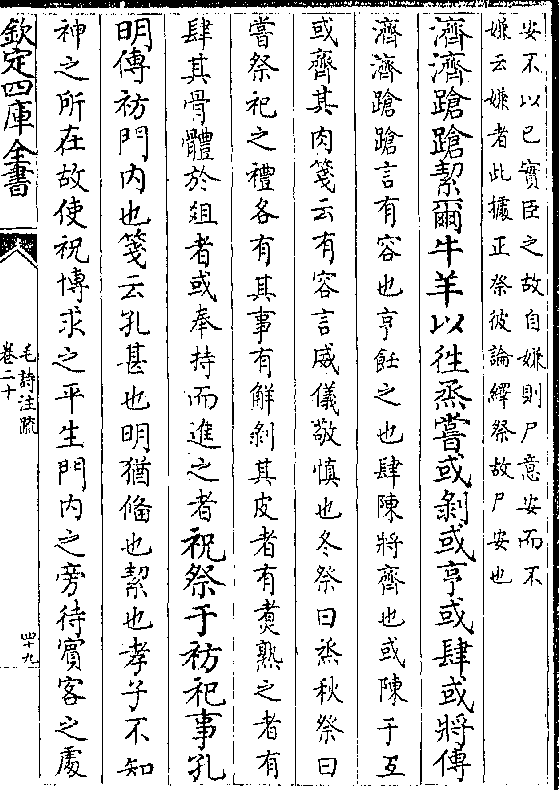 安不以己實臣之故自嫌則尸意安而不
嫌云嫌者此據正祭彼論繹祭故尸安也
濟濟蹌蹌絜爾牛羊以往烝嘗或剝或亨或肆或將傳
濟濟蹌蹌言有容也亨飪之也肆陳將齊也或陳于互
或齊其肉箋云有容言威儀敬慎也冬祭曰烝秋祭曰
嘗祭祀之禮各有其事有解剝其皮者有煑熟之者有
肆其骨體於俎者或奉持而進之者祝祭于祊祀事孔
明傳祊門內也箋云孔甚也明猶備也絜也孝子不知
神之所在故使祝博求之平生門內之旁待賓客之處
欽定四庫全書
毛詩注疏
卷二十
四十九